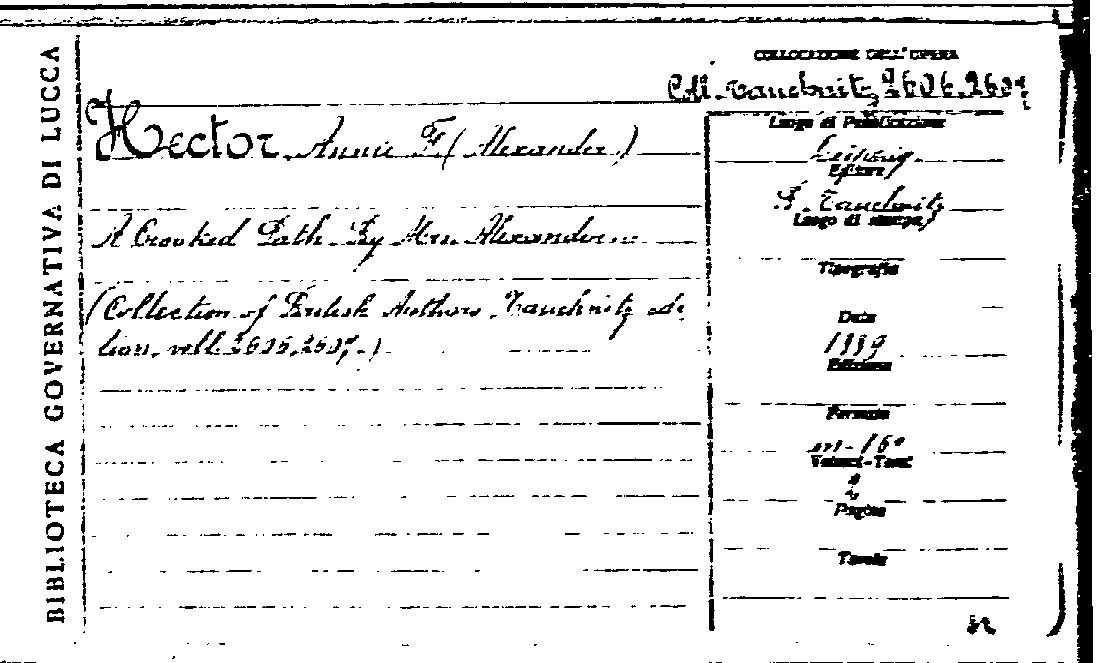 BIBLIOTECA GOVERNATIVA DI LUCCA
COLLOCAZIONE DELL'OPERA
Coll. Tauchnitz, 2606.2607
Hector, Annie F. (Alexander)
A Crooked Path. By Mrs. Alexander.
(Collection of British Authors. Tauchnitz edi
tion. voll. 2606.2607.)
Luogo di Pubblicazione
Leipzig
Editore
B. Tauchnitz
Luogo di stampa
Tipografia
Data
1889
Edizione
Formato
in-16°
Volumi-Tomi
2
Pagine
Tavole